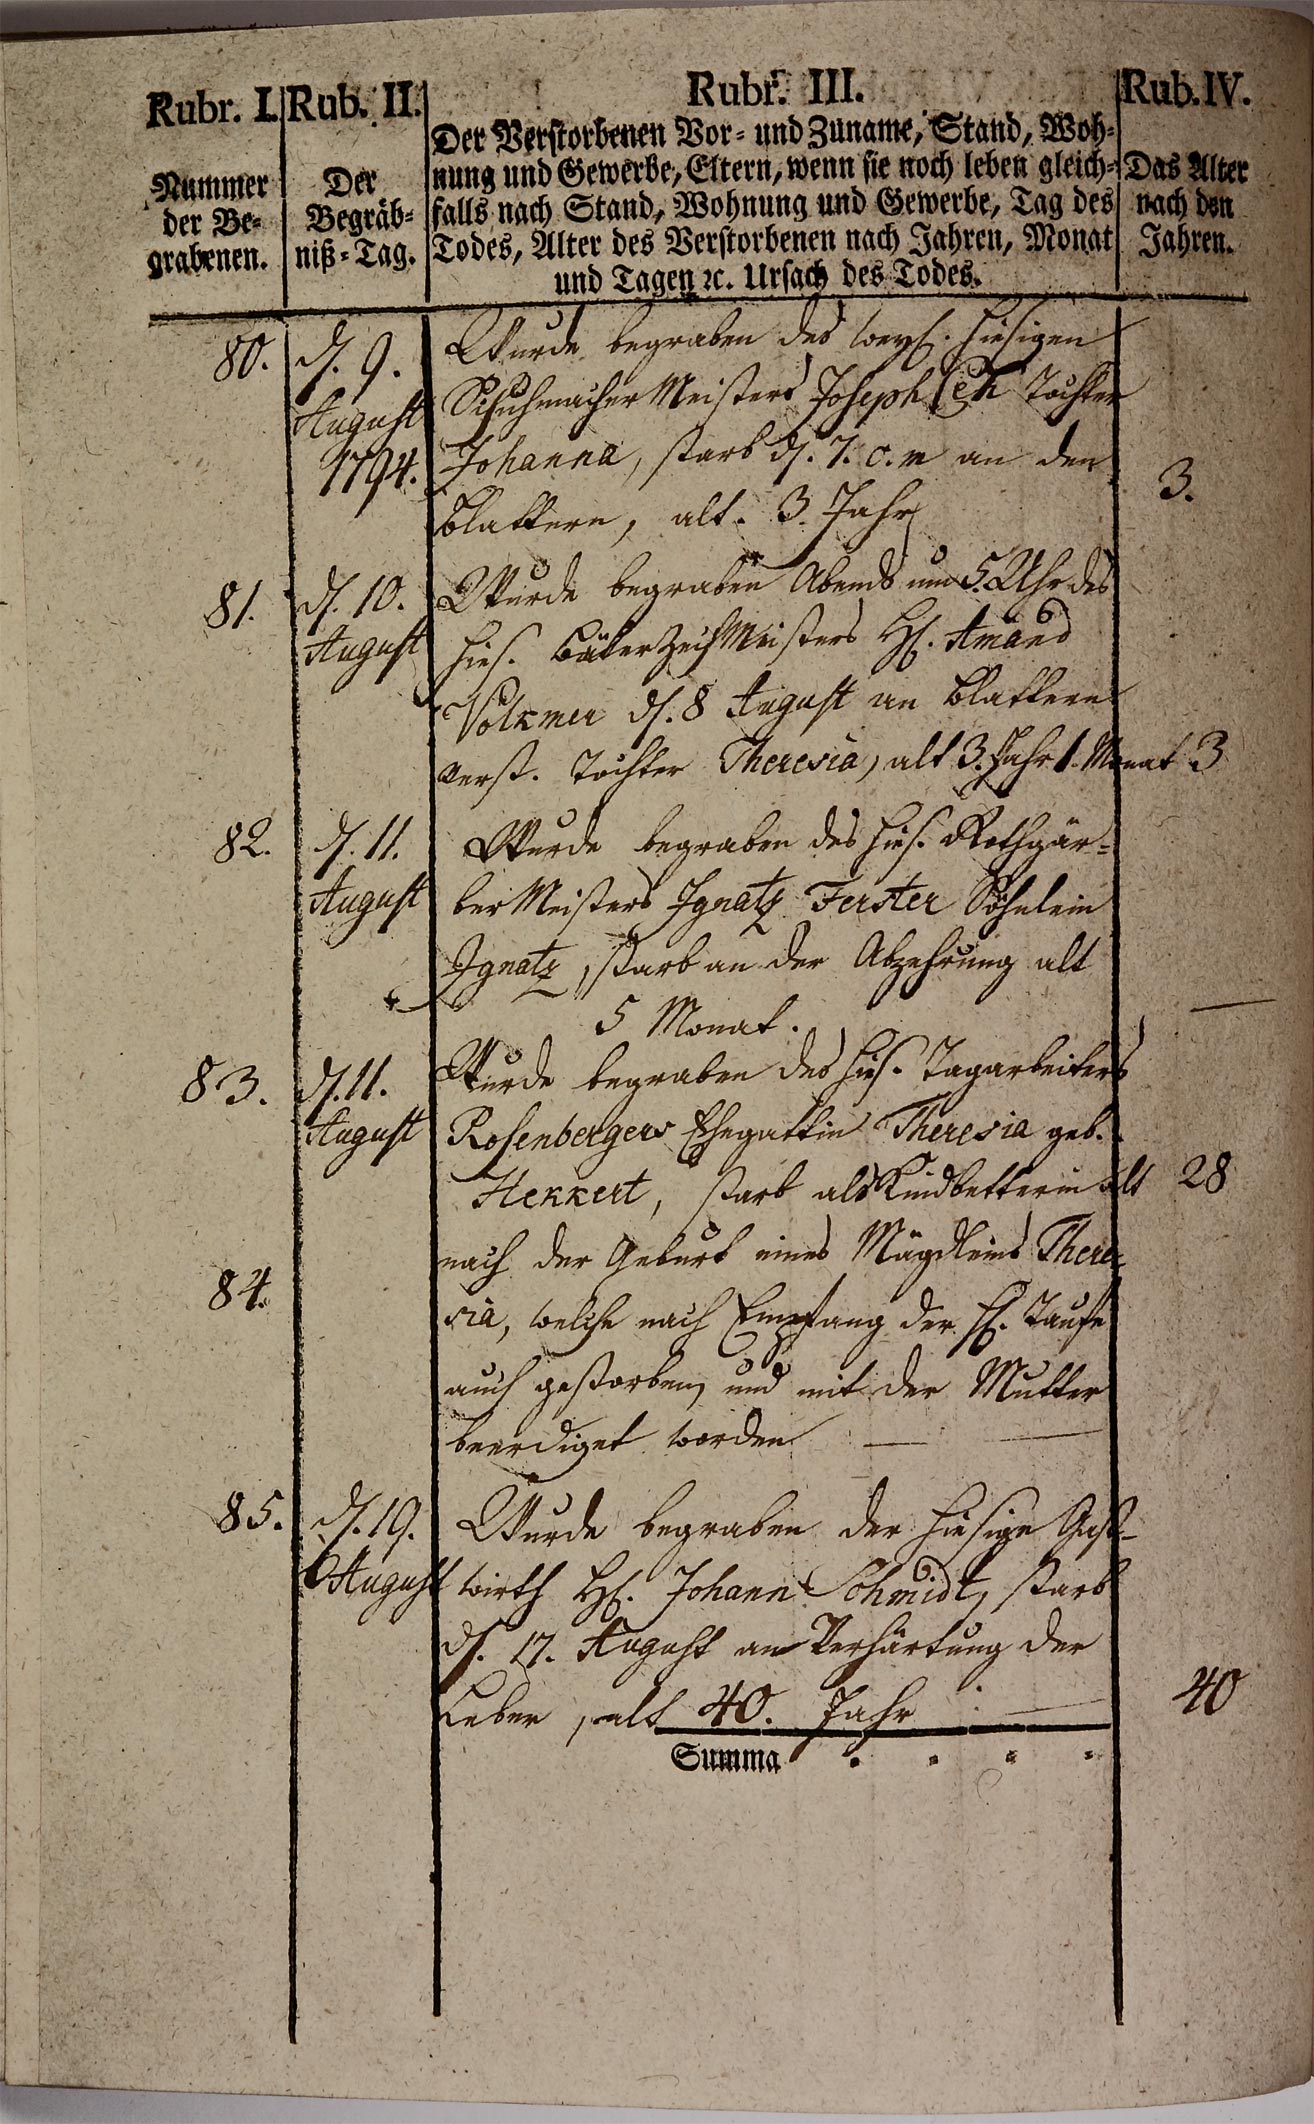 Rubr. I. Rub. II. Rubr. III. Rub. IV.
Nummer der Be-grabenen.
Der Begräb-niß-Tag.
Der Verstorbenen Vor- und Zuname, Stand, Woh-
nung und Gewerbe, Eltern, wenn sie noch leben gleich-
falls nach Stand, Wohnung und Gewerbe, Tag des
Todes, Alter des Verstorbenen nach Jahren, Monat
und Tagen ꝛc. Ursach des Todes.
Das Alter
nach den
Jahren.
80. d. 9. August 1794.
Wurde begraben des weyl. hiesigen
Schuhmacher Meisters Joseph Tochter
Johanna, starb d. 7. c. m an den
Blattern, alt. 3. Jahr
3.
81. d. 10. August
Wurde begraben Abends um 5. Uhr des
hies. Bäker ZechMeisters H. Amand
Volkmer d. 8 August an Blattern
verst. Tochter Theresia, alt 3. Jahr 1. Monat 3
82. d. 11. August
Wurde begraben des hies. Rothgär-
ber Meisters Ignatz Ferster Söhnlein
Ignatz, starb an der Abzehrung alt
5 Monat. —
83. d. 11. August
Wurde begraben des hies. Tagarbeiters
Rosenbergers Ehegattin Theresia geb.
Hekkert, starb als Kindbetterin alt 28
nach der Geburt eines Mägdleins There-
84.
sia, welche nach Empfang der h. Taufe
auch gestorben, und mit der Mutter
beerdiget worden — —
85. d. 19. August
Wurde begraben der hiesige Gast-
wirth H. Johann Schmidt, starb
d. 17. August an Verhärtung der
Leber, alt 40. Jahr — 40
Summa